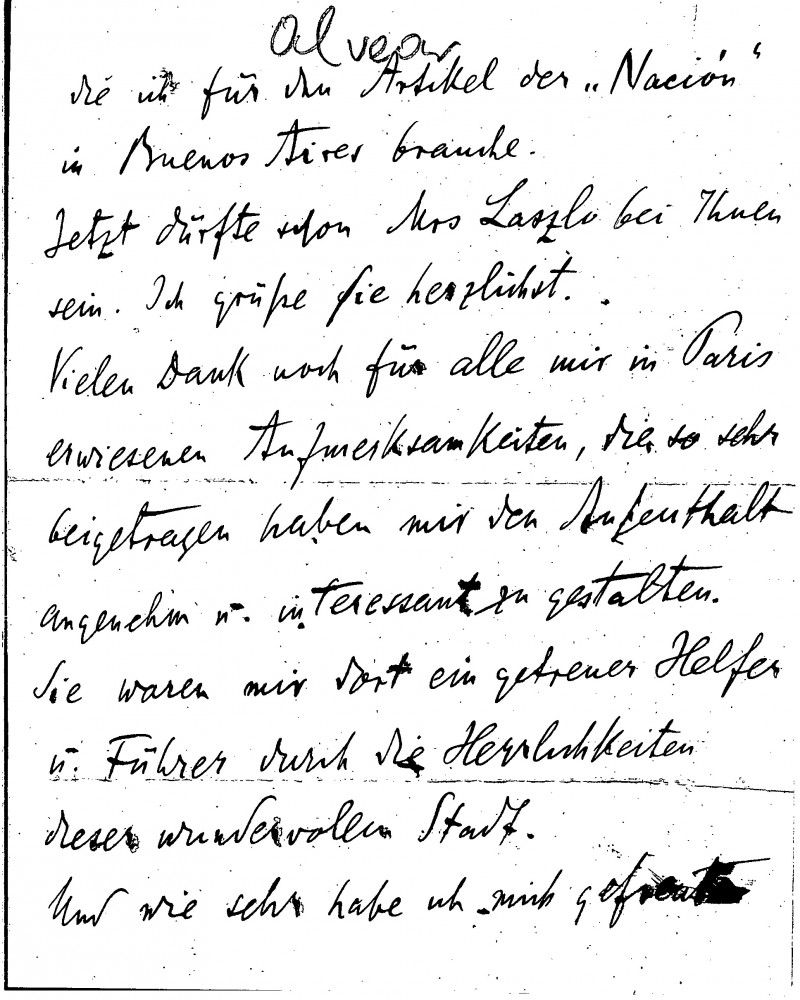 Alvear
die ich für den Artikel der „Nación“
in Buenos Aires brauche.
Jetzt dürfte schon Mrs Laszlo bei Ihnen
sein. Ich grüße Sie herzlichst.
Vielen Dank noch für alle mir in Paris
erwiesenen Aufmerksamkeiten, die so sehr
beigetragen haben mir den Aufenthalt
angenehm u. interessant zu gestalten.
Sie waren mir dort ein getreuer Helfer
u. Führer durch die Herrlichkeiten
dieser wundervollen Stadt.
Und wie sehr habe ich mich gefreut